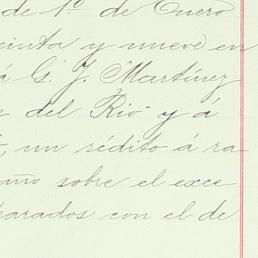 de 1º de Enero
einta y nueve en
á G. J. Martínez
del Rio y á
un rédito á ra
año sobre el exce
parados con el de